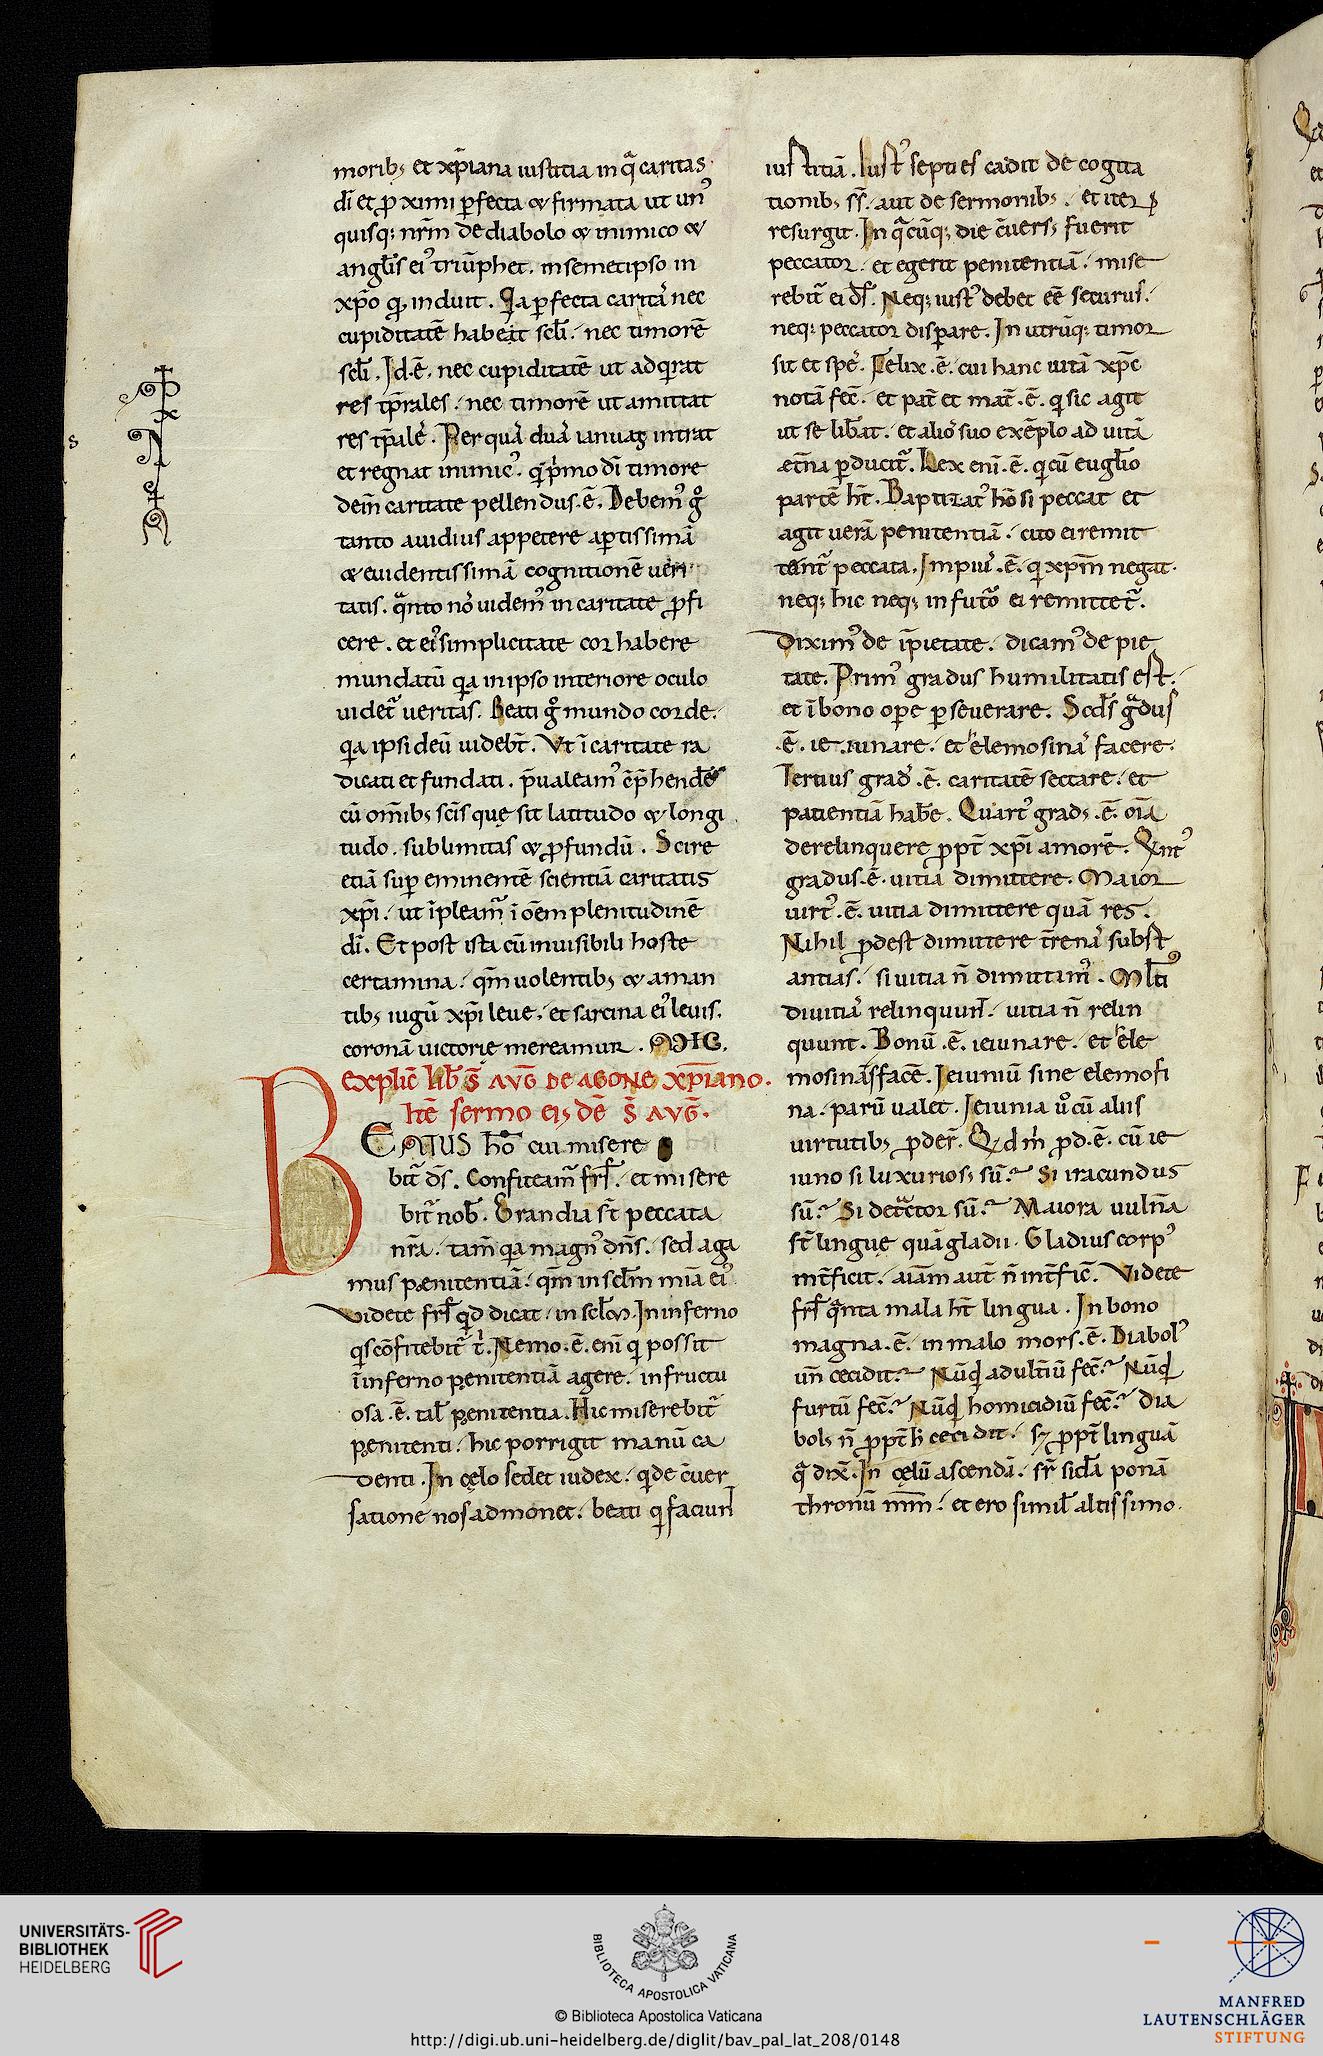 moribꝫ et xp̄iana iustitia in q̄ caritas
dī et ꝓximi ꝑfecta & firmata ut un᾽
quisqꝫ nr̄m de diabolo & inimico &
angl̄is ei᾽ triūphet. in semetipso in
xp̄o qͥ induit. Qͥa ꝑfecta caritas nec
cupiditatē habeat scl̄i. nec timorē
scl̄i. Id.ē. nec cupiditatē ut adqͥrat
res tp̄rales. nec timorē ut amittat
res tp̄ales. Per quas duas ianuas intrat
et regnat inimic᾽. qͥ pͥmo dī timore
dein̄ caritate pellendus.ē. Debem᾽ gͦ
tanto auidius appetere aꝑtissimā
& euidentissimā cognitionē ueri
tatis. qͣnto nos uidem᾽ in caritate ꝓfi
cere. et ei᾽ simplicitate cor habere
mundatū qͥa in ipso interiore oculo
uidet᷑ ueritas. Beati gͦ mundo corde.
qͥa ipsi deū uidebt̄. Vt ī caritate ra
dicati et fundati. p̄ualeam᾽ cōp̄hendere
cū om̄ibꝫ scīs quę sit latitudo & longi
tudo. sublimitas & ꝓfundū. Scire
etiā suꝑ eminentē scientiā caritatis
xp̄i. ut īpleam᷑ ī oēm plenitudinē
dī. Et post ista cū inuisibili hoste
certamina. qm̄ uolentibꝫ & aman
tibꝫ iugū xp̄i leue. et sarcina ei᾽ leuis.
coronā uictorię mereamur.
explic̄ lib̄ s̄ avḡ de agone xp̄iano.
Itē sermo eiꝰdē s̄ avḡ.
BEATUS hō cui misere
bit᷑ dn̄s. Confiteam᷑ fr̄s. et misere
bit᷑ nob̄. Grandia st̄ peccata
nr̄a. tam̄ qͥa magn᾽ dn̄s. sed aga
mus pænitentiā. qm̄ in scl̄m mīa ei᾽
Videte fr̄s qͥd dicat. in In inferno
qͥs cōfitebit᷑ tͥ. Nemo.ē. eni᷑ qͥ possit
ī inferno pęnitentiā agere. infructu
osa.ē. tal̄ pęnitentia. Hic miserebit᷑
pęnitenti. hic porrigit manū ca
denti. In cęlo sedet iudex. qͥ de cōuer
satione nos admonet. beati qͥ faciunt
iustitiā. Iust᾽ septies cadit de cogita
tionibꝫ suis. aut de sermonibꝫ. et iteꝝ
resurgit. In qͣcūqꝫ die cōuersꝰ fuerit
peccator. et egerit penitentiā. mise
rebit᷑ ei ds̄. Neqꝫ iust᾽ debet eē securus.
neqꝫ peccator disperare. In utrūqꝫ timor
sit et spes. Felix.ē. cui hanc uitā xp̄c
notā fec̄. et pat̄ et mat̄.ē. qͥ sic agit
ut se lib̄at. et alios suo exēplo ad uitā
æt̄na ꝑducit᷑. Lex eni᷑.ē. qͥ cū eugl̄io
partē ht̄. Baptizat᾽ hō si peccat et
agit uerā penitentiā. cito ei remit
tunt᷑ peccata. Impius.ē. qͥ xp̄m negat.
neqꝫ hic neqꝫ in futuro ei remittet᷑.
Dixim᾽ de īpietate. dicam᾽ de pie
tate. Prim᾽ gradus humilitatis est.
et ī bono oꝑe ꝑseuerare. Scd̄s gͣdus
.ē. ieiunare. et elemosinas facere.
Tertius grad᾽.ē. caritatē sectare. et
patientiā hab̄e. Quart᾽ gradꝰ.ē. oīa
derelinquere ꝓpt̄ xp̄i amorē. Qͥnt᾽
gradus.ē. uitia dimittere. Maior
uirt᾽.ē. uitia dimittere quā res.
Nihil ꝓdest dimittere t̄renas subst
antias. si uitia n̄ dimittim᾽. Mlti᾽
diuitias relinquunt. uitia n̄ relin
quunt. Bonū.ē. ieiunare. et ele
mosinas facē. Ieiuniū sine elemosi
na. parū ualet. Ieiunia uͦ cū aliis
uirtutibꝫ ꝓder̄. Qͥd mͥ ꝓd.ē. cū ie
iuno si luxuriosꝰ sū? Si iracundus
sū? Si detͣctor sū? Maiora uuln̄a
st̄ linguę quā gladii. Gladius corp᾽
int̄ficit. aīam aut̄ n̄ int̄fic̄. Videte
fr̄s qͣnta mala ht̄ lingua. In bono
magna.ē. in malo mors.ē. Diabol᾽
un̄ cecidit? Nūqͥd adult̄iū fec̄? Nūqͥd
furtū fec̄? Nūqͥd homicidiū fec̄? Dia
bolꝰ n̄ ꝓpt̄ h̄ cecidit. sꝫ ꝓpt̄ linguā
qͣ dix̄. In cęlū ascendā. sr̄ sidͣa ponā
thronū mm̄. et ero simil̄ altissimo.
UNIVERSITÄTS-
BIBLIOTHEK
HEIDELBERG
BIBLIOTECA APOSTOLICA VATICANA
© Biblioteca Apostolica Vaticana
http://digi.ub.uni-heidelberg.de/diglit/bav_pal_lat_208/0148
MANFRED
LAUTENSCHLÄGER
STIFTUNG